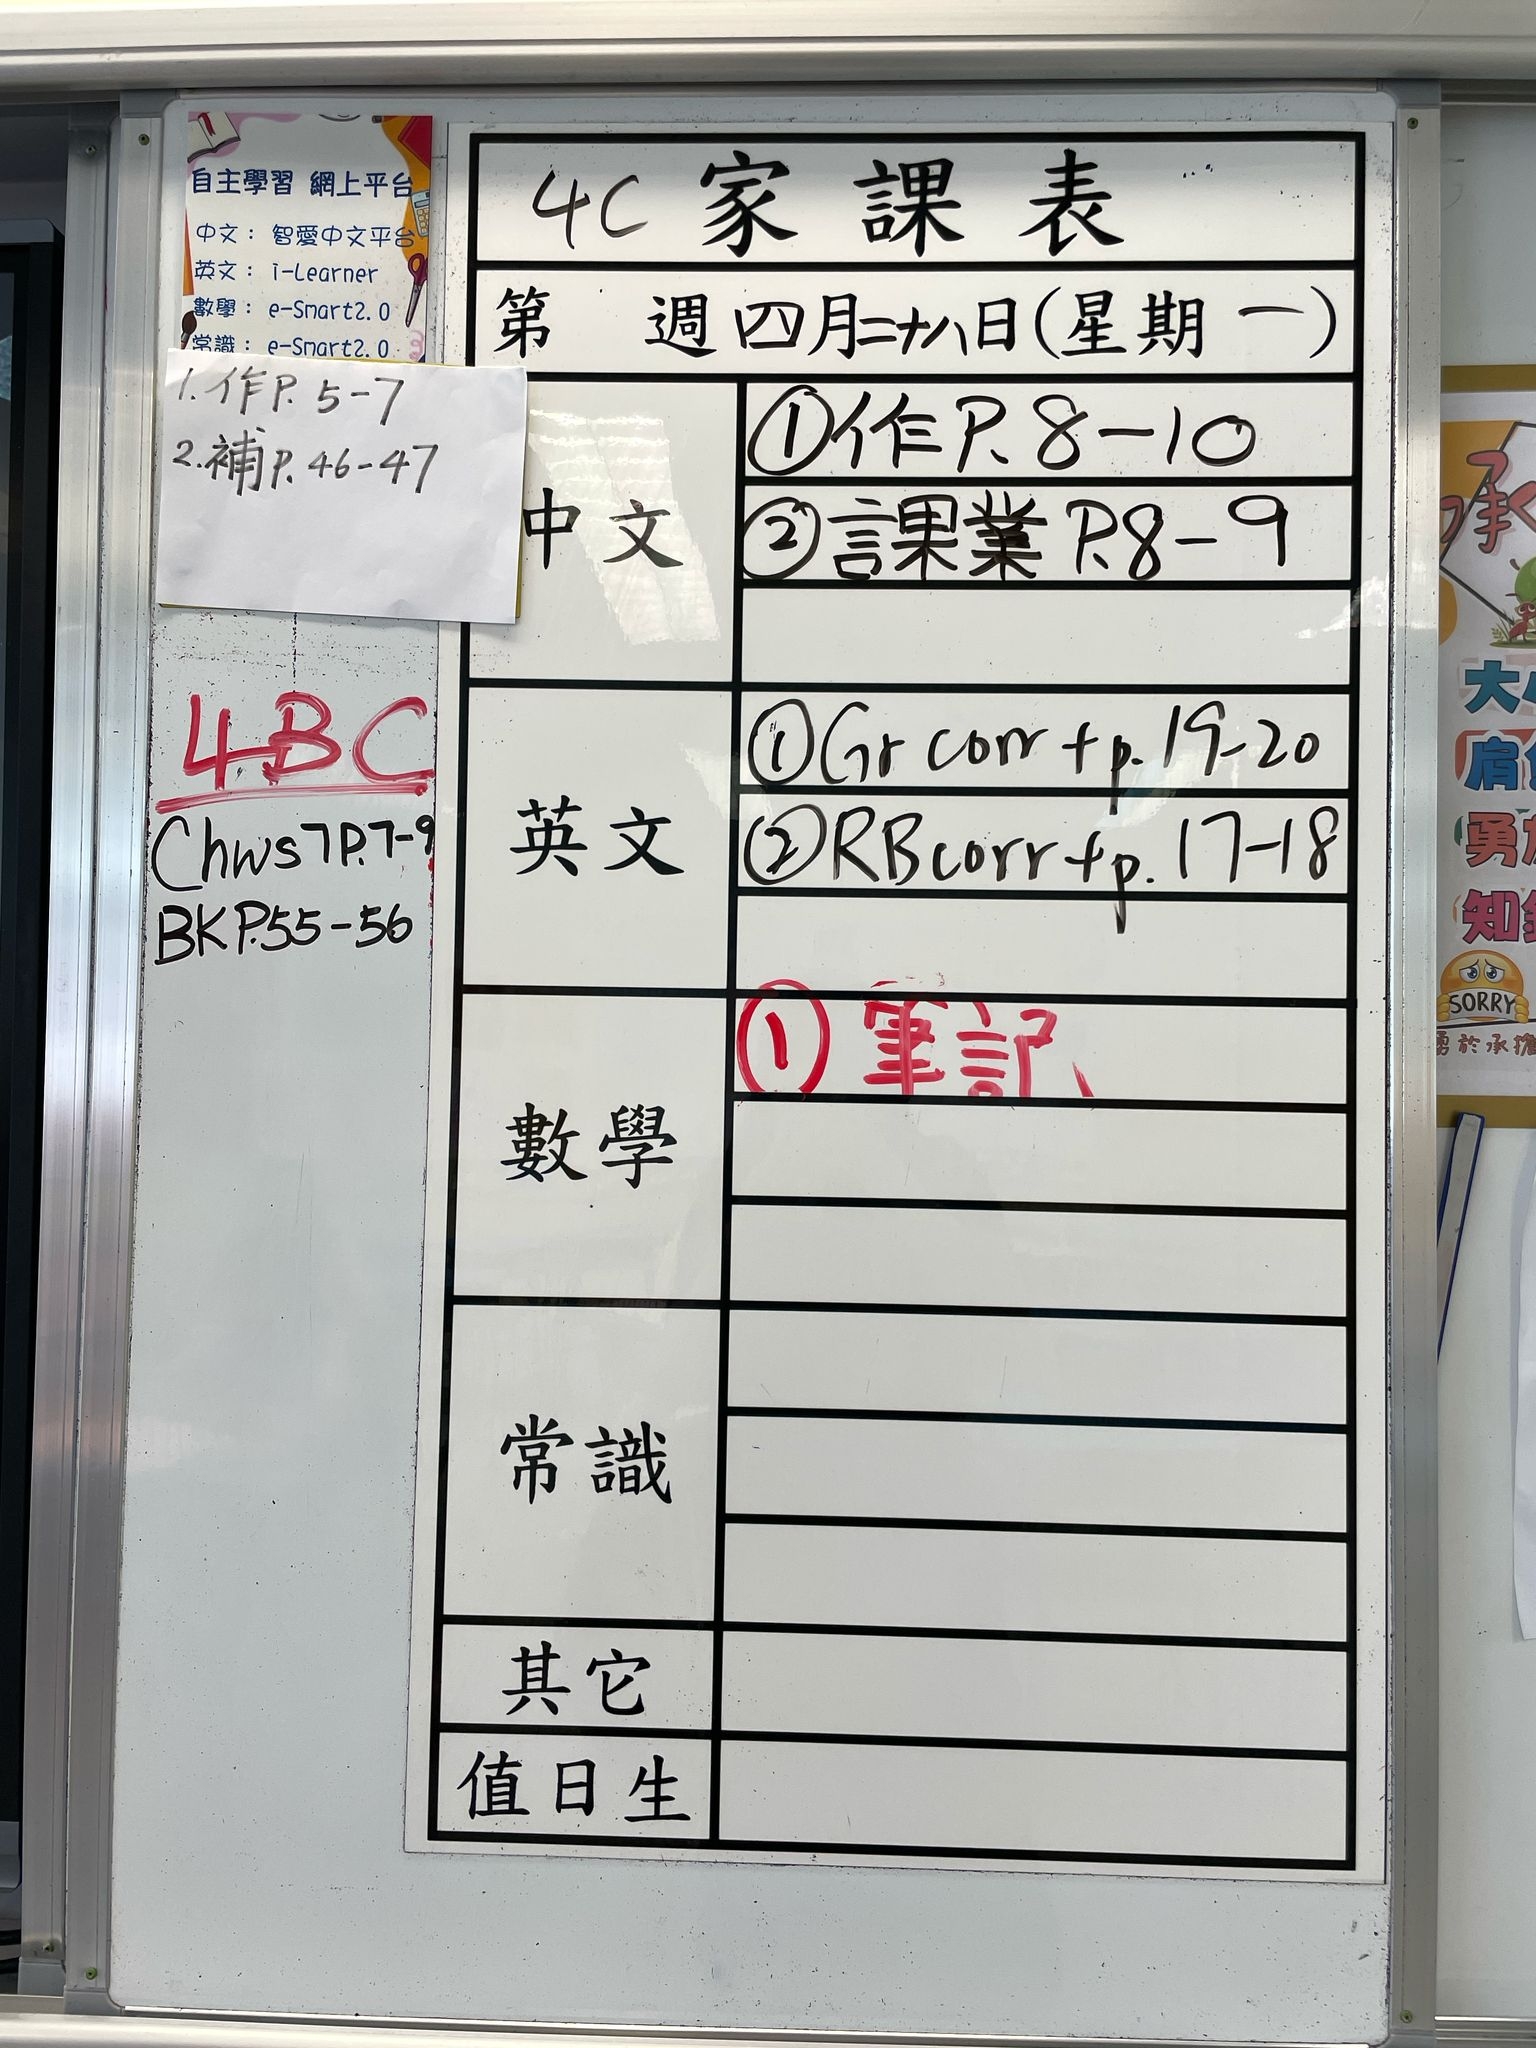 自主學習 網上平台
中文：智愛中文平台
英文：i-Learner
數學：e-Smart2.0
常識：e-Smart2.0
1. 作P. 5-7
2. 補P. 46-47
4BC
Chws7P.7-9
BKP.55-56
4C 家課表
第 週 四月二十八日(星期一)
中文
①作P. 8-10
②課業 P.8-9
英文
①Gr corr + p. 19-20
②RB corr + p. 17-18
數學
①筆記
常識
其它
值日生
承
大
肩
勇
知
SORRY
勇於承擔